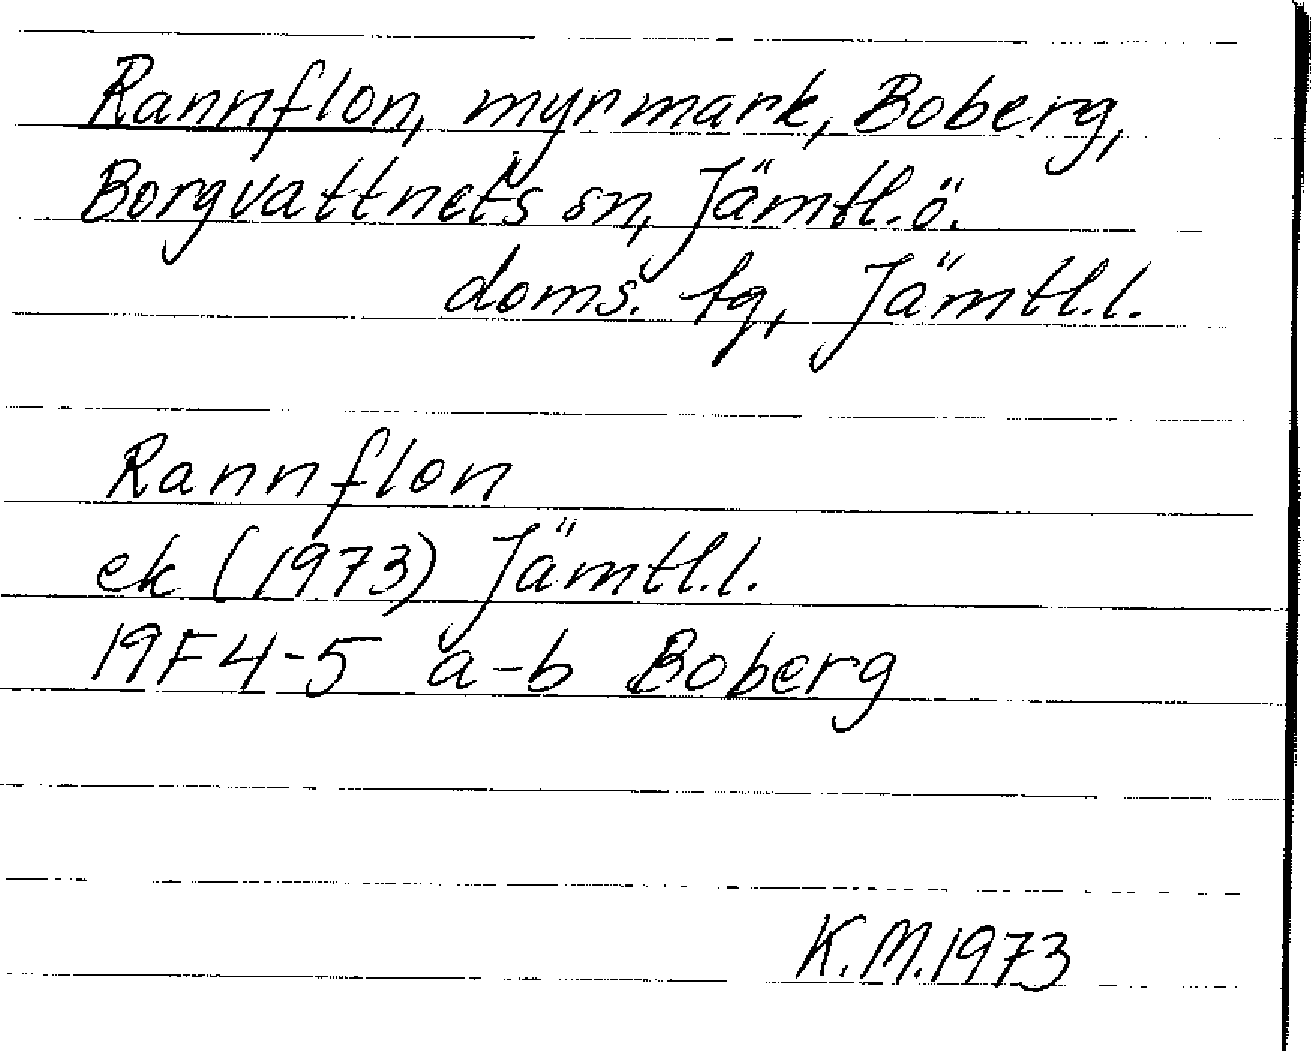 Rannflon, myrmark, Boberg,
Borgvattnets sn, Jämtl.ö.
doms. tg, Jämtl.l.
Rannflon
ek (1973) Jämtl.l.
19F4-5 a-b Boberg
K.M.1973